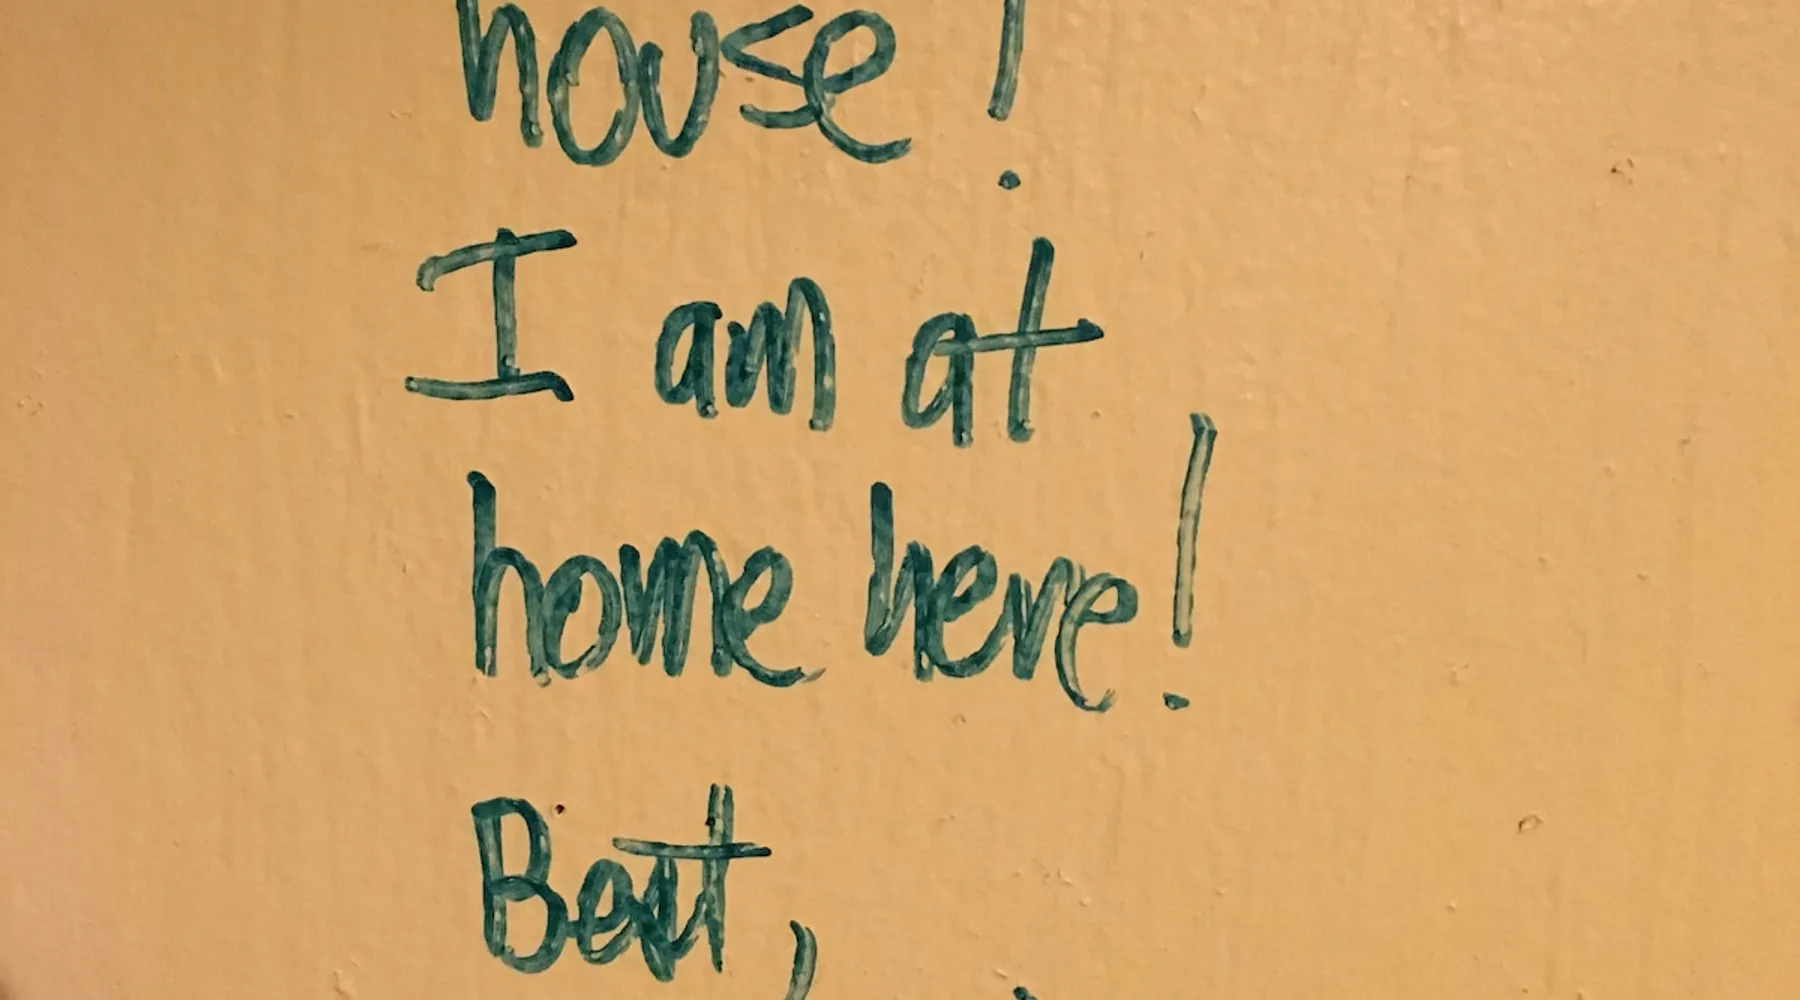 house!
I am at
home here!
Best,